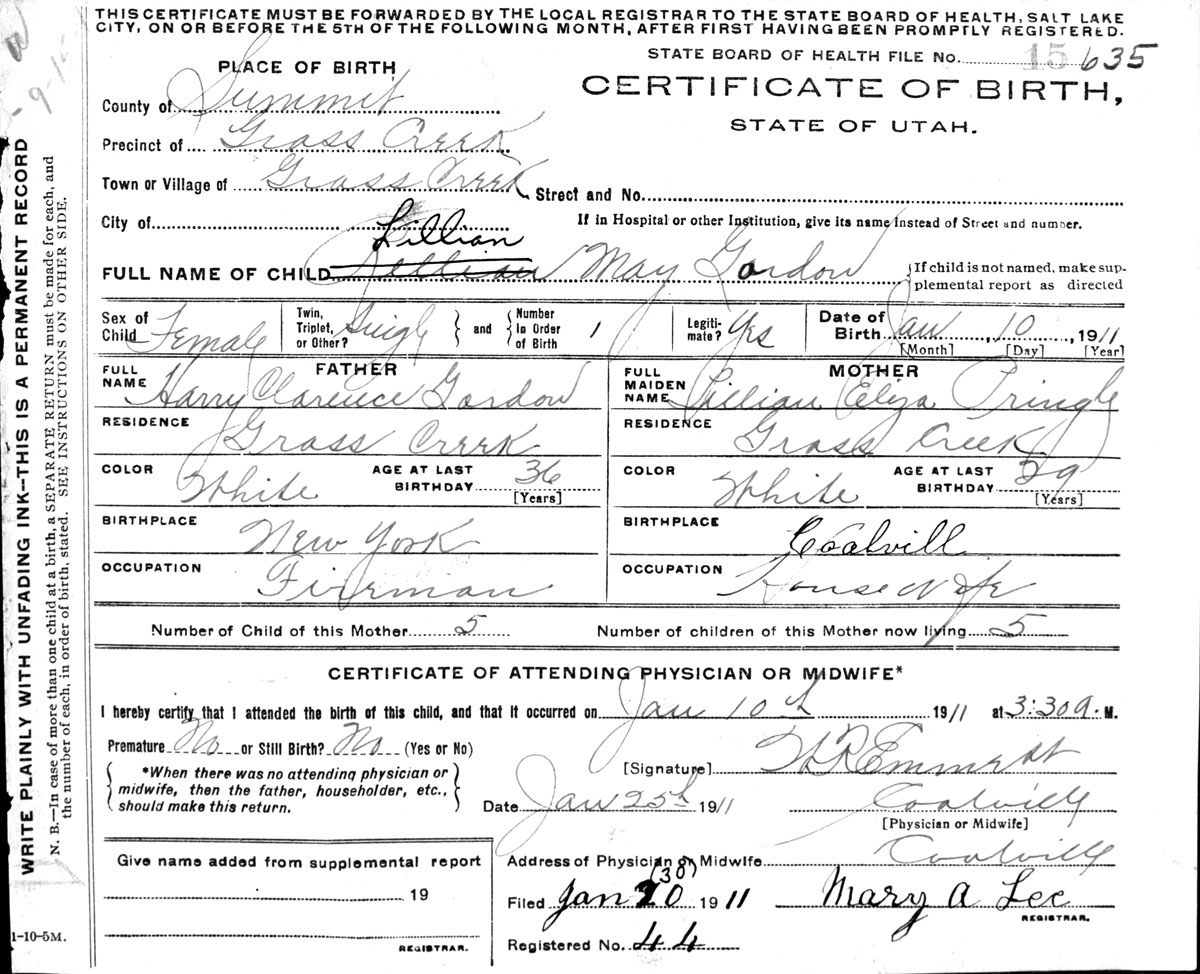 THIS CERTIFICATE MUST BE FORWARDED BY THE LOCAL REGISTRAR TO THE STATE BOARD OF HEALTH, SALT LAKE
CITY, ON OR BEFORE THE 5TH OF THE FOLLOWING MONTH, AFTER FIRST HAVING BEEN PROMPTLY REGISTERED.
STATE BOARD OF HEALTH FILE NO. 15 635
CERTIFICATE OF BIRTH,
STATE OF UTAH.
PLACE OF BIRTH
County of Summit
Precinct of Grass Creek
Town or Village of Grass Creek Street and No.
City of If in Hospital or other Institution, give its name instead of Street and number.
Lillian
FULL NAME OF CHILD May Gordon
If child is not named, make sup-
plemental report as directed
Sex of Child Female
Twin, Triplet, or Other? Singl and Number In Order of Birth 1
Legiti-mate? Yes
Date of Birth Jan 10, 1911
[Month] [Day] [Year]
FATHER
FULL NAME Harry Clarence Gordon
RESIDENCE Grass Creek
COLOR White AGE AT LAST BIRTHDAY 36 [Years]
BIRTHPLACE New York
OCCUPATION Fireman
MOTHER
FULL MAIDEN NAME Lillian Eliza Pringle
RESIDENCE Grass Creek
COLOR White AGE AT LAST BIRTHDAY 29 [Years]
BIRTHPLACE Coalvill
OCCUPATION House Wife
Number of Child of this Mother 5 Number of children of this Mother now living 5
CERTIFICATE OF ATTENDING PHYSICIAN OR MIDWIFE*
I hereby certify that I attended the birth of this child, and that it occurred on Jan 10th 1911 at 3:30 a. M.
Premature No or Still Birth? No (Yes or No)
*When there was no attending physician or
midwife, then the father, householder, etc.,
should make this return.
[Signature]
Date Jan 25th 1911 Coalvill
[Physician or Midwife]
Give name added from supplemental report
19
REGISTRAR.
Address of Physician or Midwife Coalvill
(30)
Filed Jan 20 1911 Mary A Lee
REGISTRAR.
Registered No. 44
1-10-5M.
WRITE PLAINLY WITH UNFADING INK—THIS IS A PERMANENT RECORD
N. B.—In case of more than one child at a birth, a SEPARATE RETURN must be made for each, and
the number of each, in order of birth, stated. SEE INSTRUCTIONS ON OTHER SIDE.